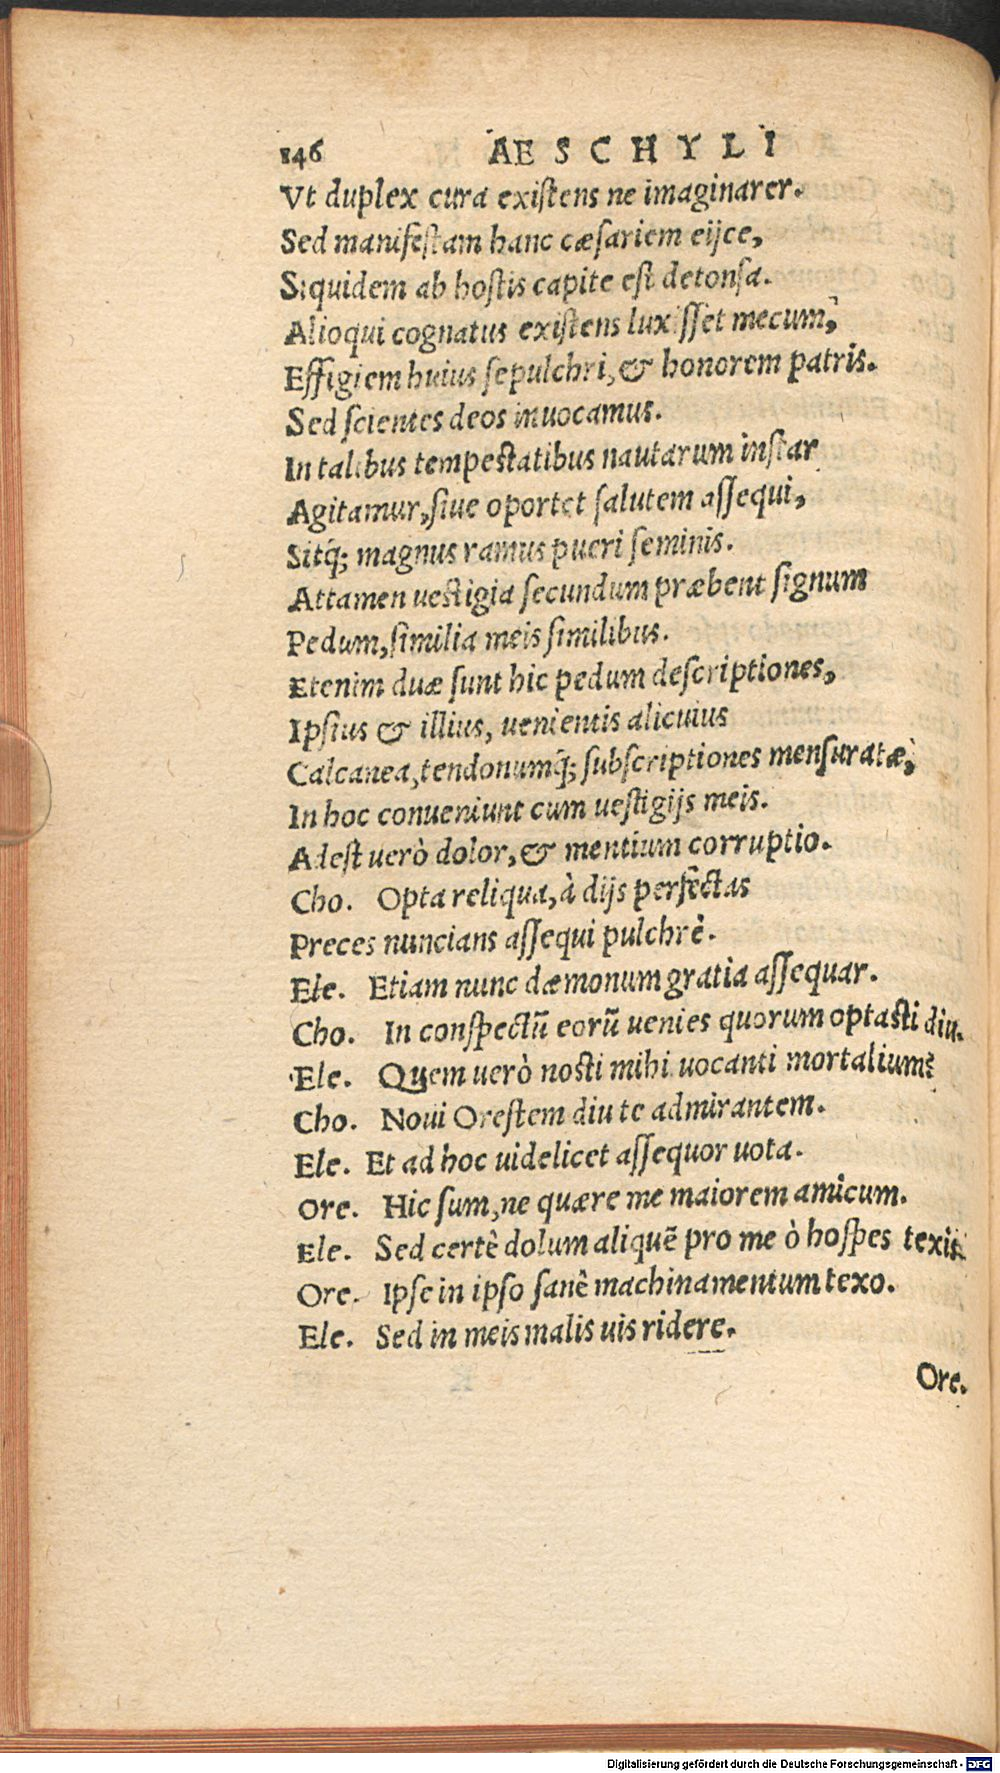 146 AESCHYLI
Vt duplex cura existens ne imaginarer.
Sed manifestam hanc cæsariem eijce,
Siquidem ab hostis capite est detonsa.
Alioqui cognatus existens luxisset mecum,
Effigiem huius sepulchri, & honorem patris.
Sed scientes deos inuocamus.
In talibus tempestatibus nautarum instar
Agitamur, siue oportet salutem assequi,
Sitq́; magnus ramus pueri seminis.
Attamen uestigia secundum præbent signum
Pedum, similia meis similibus.
Etenim duæ sunt hic pedum descriptiones,
Ipsius & illius, uenientis alicuius
Calcanea, tendonumq́; subscriptiones mensuratæ,
In hoc conueniunt cum uestigijs meis.
Adest uerò dolor, & mentium corruptio.
Cho. Opta reliqua, à dijs perfectas
Preces nuncians assequi pulchrè.
Ele. Etiam nunc dæmonum gratia assequar.
Cho. In conspectũ eorũ uenies quorum optasti diu.
Ele. Quem uerò nosti mihi uocanti mortalium?
Cho. Noui Orestem diu te admirantem.
Ele. Et ad hoc uidelicet assequor uota.
Ore. Hic sum, ne quære me maiorem amicum.
Ele. Sed certè dolum aliquẽ pro me ò hospes texis.
Ore. Ipse in ipso sanè machinamentum texo.
Ele. Sed in meis malis uis ridere.
Ore.
Digitalisierung gefördert durch die Deutsche Forschungsgemeinschaft - DFG